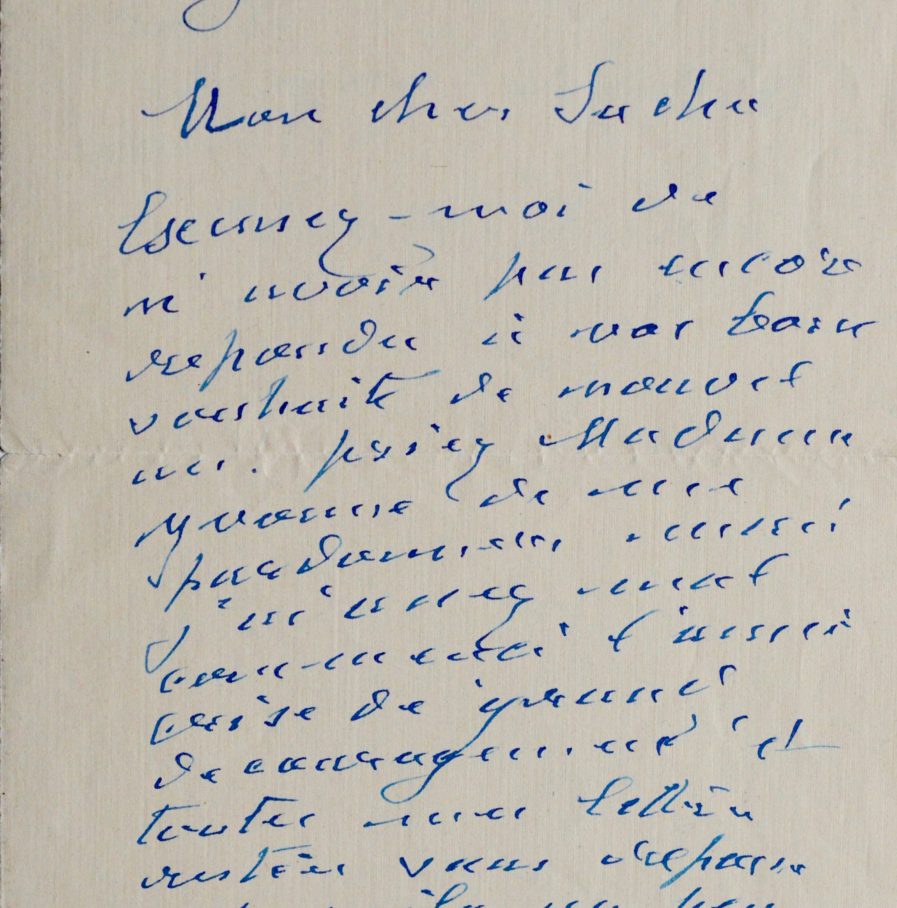 Mon cher Sacha
Excusez-moi de
n'avoir pas encore
repondu à vos bons
souhaits de nouvel
an. priez Madame
Yvonne de me
pardonner aussi
j'ai assez mal
commencé l'année
crise de grand
decouragement et
toutes mes lettres
restées sans repon